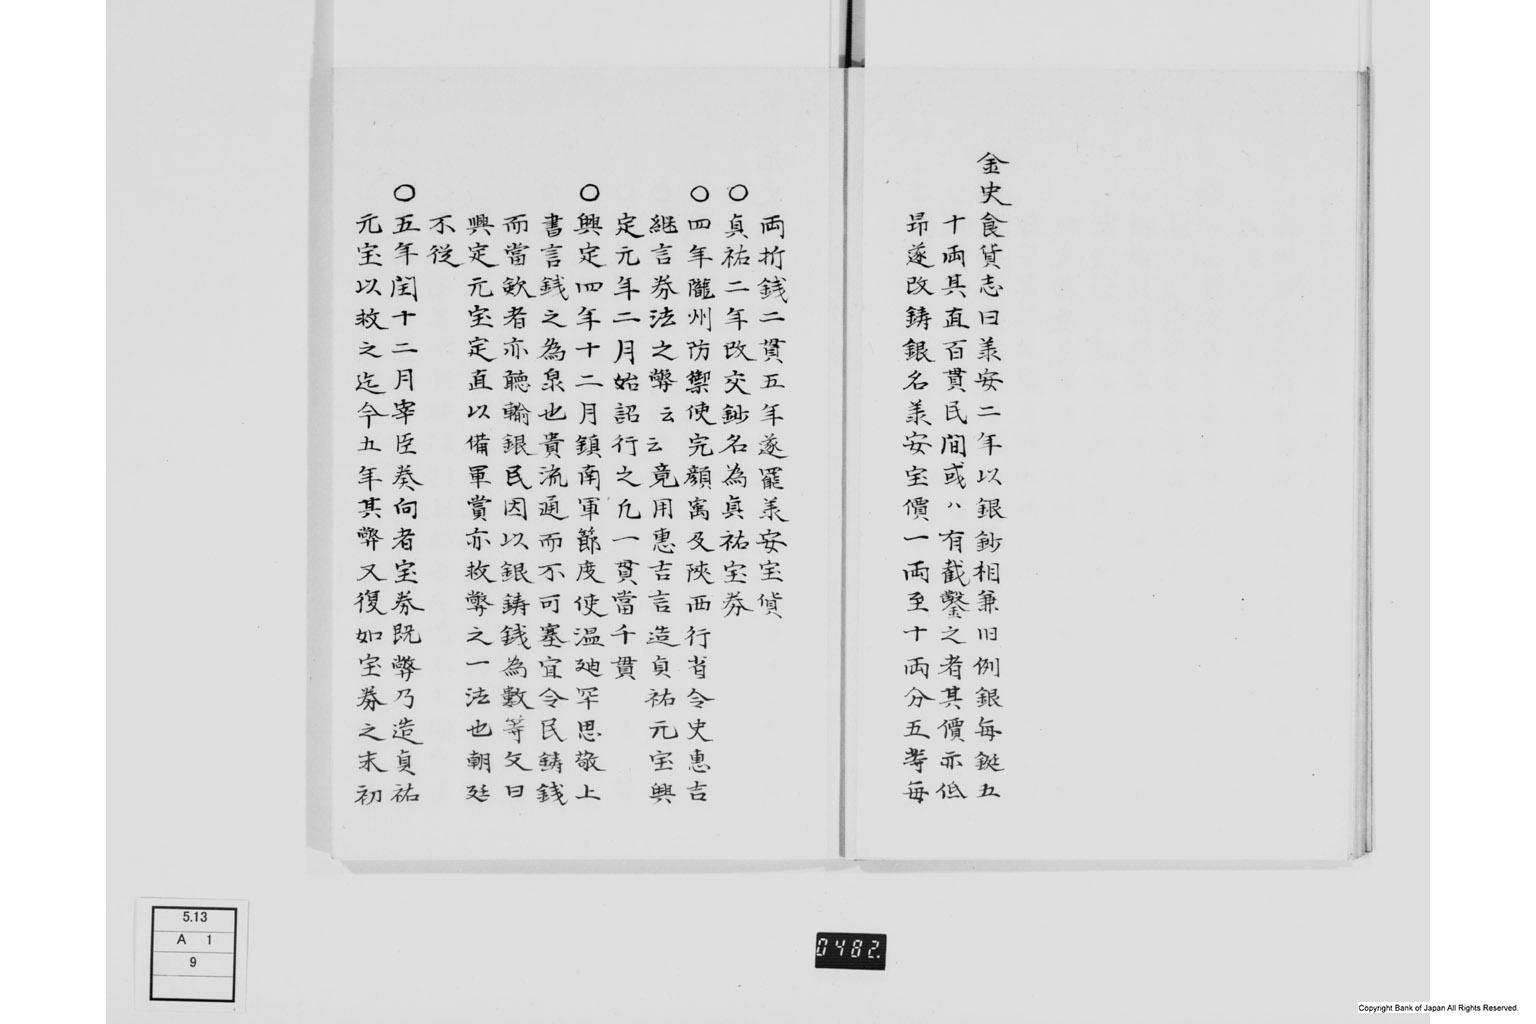 金史食貨志曰羕安二年以銀鈔相兼旧例銀每鋌五
十両其直百貫民間或ハ有截鑿之者其價亦低
昻遂改鋳銀名羕安宝價一両至十両分五等每
両折銭二貫五年遂罷羕安宝貨
〇貞祐二年改交鈔名為貞祐宝券
〇四年隴州防禦使完顔寓及陝西行省令史惠吉
継言券法之弊云云竟用惠吉言造貞祐元宝興
定元年二月始詔行之凢一貫當千貫
〇興定四年十二月鎮南軍節度使温廸罕思敬上
書言銭之為泉也貴流通而不可塞宜令民鋳銭
而當欽者亦聴輸銀民因以銀鋳銭為數等文曰
興定元宝定直以備軍賞亦救弊之一法也朝廷
不從
〇五年闰十二月宰臣奏向者宝券既弊乃造貞祐
元宝以救之迄今五年其弊又復如宝券之末初
5.13
A 1
9
0482.
Copyright Bank of Japan All Rights Reserved.